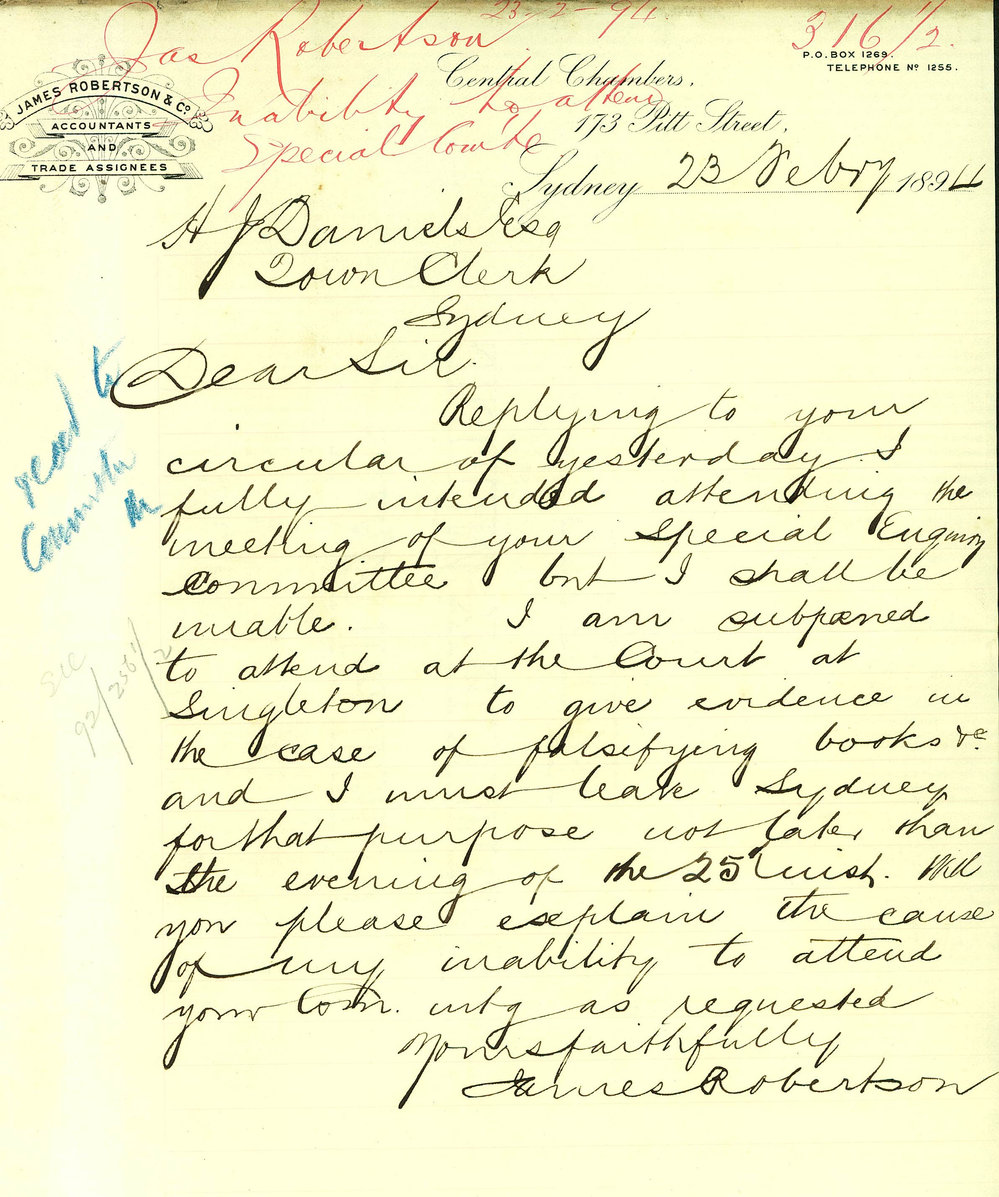 23-2-94
316/2.
Jas Robertson
Inability to attend
Special Comtee
JAMES ROBERTSON & Co
ACCOUNTANTS
AND
TRADE ASSIGNEES
P.O. BOX 1269.
TELEPHONE No 1255.
Central Chambers,
173 Pitt Street,
Sydney 23 Febry 1894
H J Daniels Esq
Town Clerk
Sydney
Dear Sir.
Replying to your
circular of yesterday I
fully intended attending the
meeting of your Special Enquiry
committee but I shall be
unable. I am subpœned
to attend at the Court at
Singleton to give evidence in
the case of falsifying books &c.
and I must leave Sydney
for that purpose not later than
the evening of the 25 inst. Will
you please explain the cause
of my inability to attend
your Com. mtg as requested
Yours faithfully
James Robertson
read to
Committee
92/2561/2